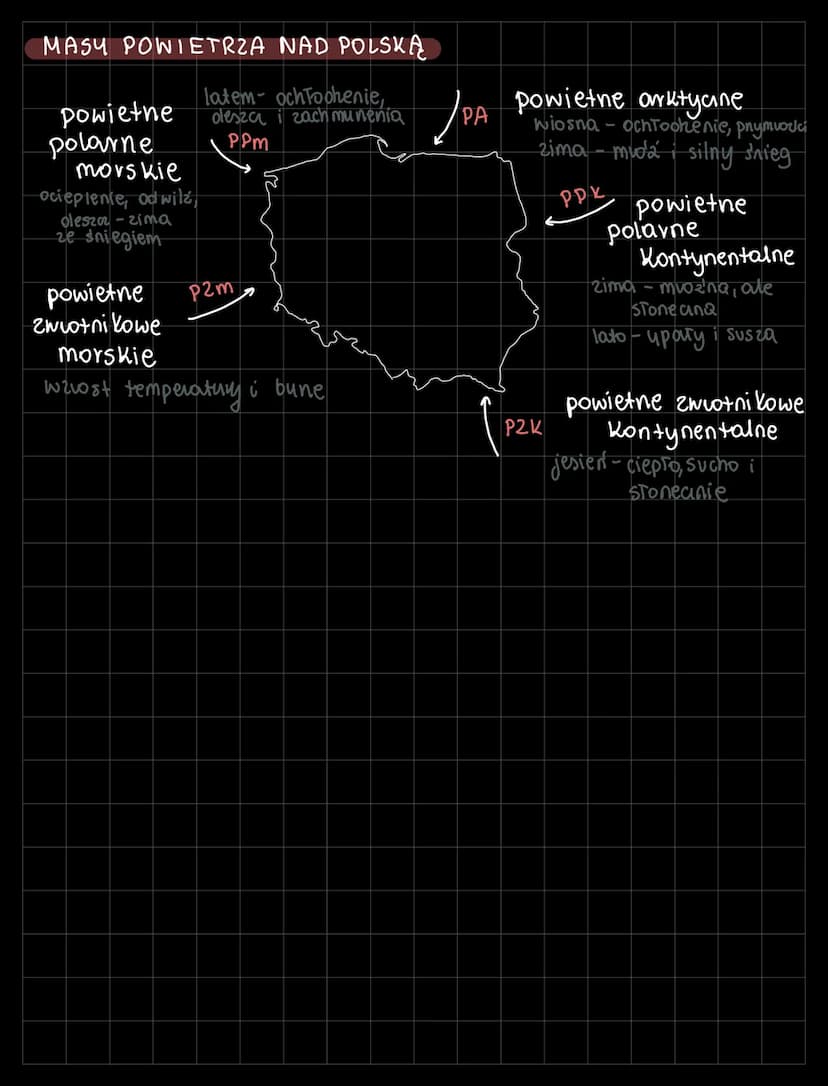 MASY POWIETRZA NAD POLSKĄ
powietrze
polarne
morskie
ocieplenie, odwilż,
deszcz - zima
ze śniegiem
latem - ochłodzenie,
deszcz i zachmurzenia
PPm
PA
powietrze arktyczne
wiosna - ochłodzenie, przymrozki
zima - mróz i silny śnieg
PPK
powietrze
polarne
kontynentalne
zima - mroźna, ale
słoneczna
lato - upały i susza
powietrze
zwrotnikowe
morskie
PZm
wzrost temperatury i burze
PZK
powietrze zwrotnikowe
kontynentalne
jesień - ciepło, sucho i
słonecznie